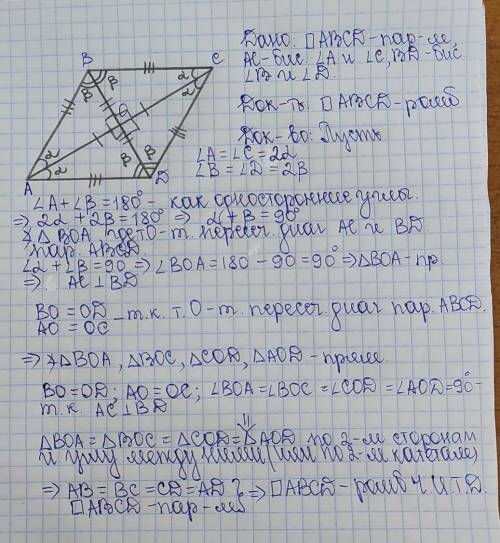 B
C
A
D
O
α
α
α
α
β
β
β
β
Дано: □ABCD-пар-м,
AC-бис. ∠A и ∠C, BD-бис
∠B и ∠D.
Док-ть: □ABCD-ромб
Док-во: Пусть
∠A=∠C=2α
∠B=∠D=2β
∠A+∠B=180°- как односторонние углы.
⇒ 2α+2β=180° ⇒ α+β=90°
△BOA, где т.O-т. пересеч. диаг AC и BD
пар. ABCD.
∠α+∠β=90 ⇒ ∠BOA=180-90=90° ⇒ △BOA-пр.
⇒ AC⊥BD
BO=OD
AO=OC - т.к. т.O-т. пересеч. диаг пар. ABCD.
⇒ △BOA, △BOC, △COD, △AOD-прям.
BO=OD; AO=OC; ∠BOA=∠BOC=∠COD=∠AOD=90°-
т.к. AC⊥BD
⇓
△BOA=△BOC=△COD=△AOD по 2-м сторонам
и углу между ними (или по 2-м катетам)
⇒ AB=BC=CD=AD } ⇒ □ABCD-ромб ч.и.т.д.
□ABCD-пар-м